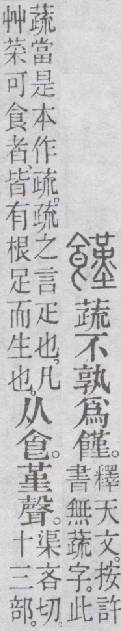 饉 蔬不孰爲饉。釋天文。按許
書無蔬字。此
蔬當是本作疏。疏之言疋也。凡
艸菜可食者、皆有根足而生也。从食堇聲。渠吝切。
十三部。